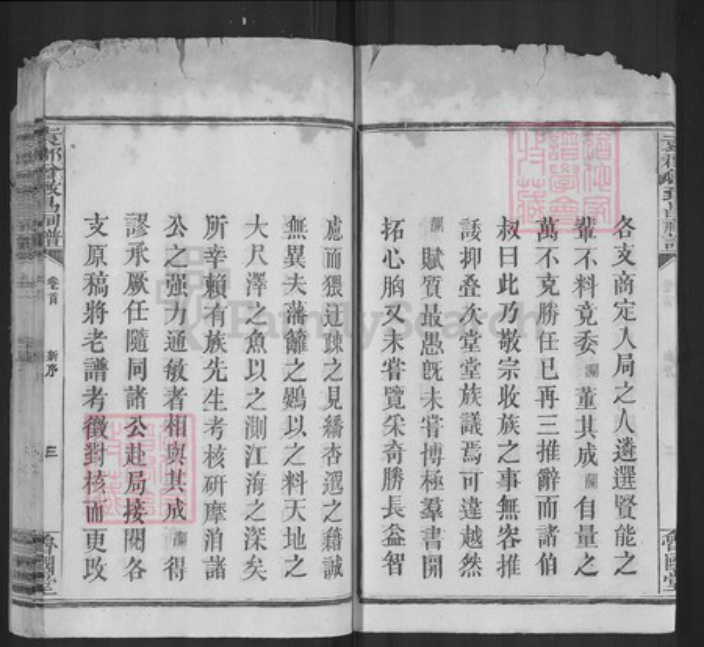 各支商定人局之人遴選賢能之
輩不料竟委瀾董其成瀾自量之
萬不克勝任已再三推辭而諸伯
叔曰此乃敬宗收族之事無容推
諉抑叠久堂堂族議焉可違越然
瀾賦質最愚旣未嘗博極羣書開
拓心胸又未嘗覽采奇勝長益智
慮而猥辻疎之見繙杳遝之籍誠
無異夫藩籬之鷃以之料天地之
大尺澤之魚以之測江海之深矣
所幸賴有族先生考核研摩洎諸
公之强力通敏者相與其成瀾得
謬承厥任隨同諸公赴局接閱各
支原稿將老譜考徵對核而更改
卷首
新序
三
魯國堂
FamilySearch